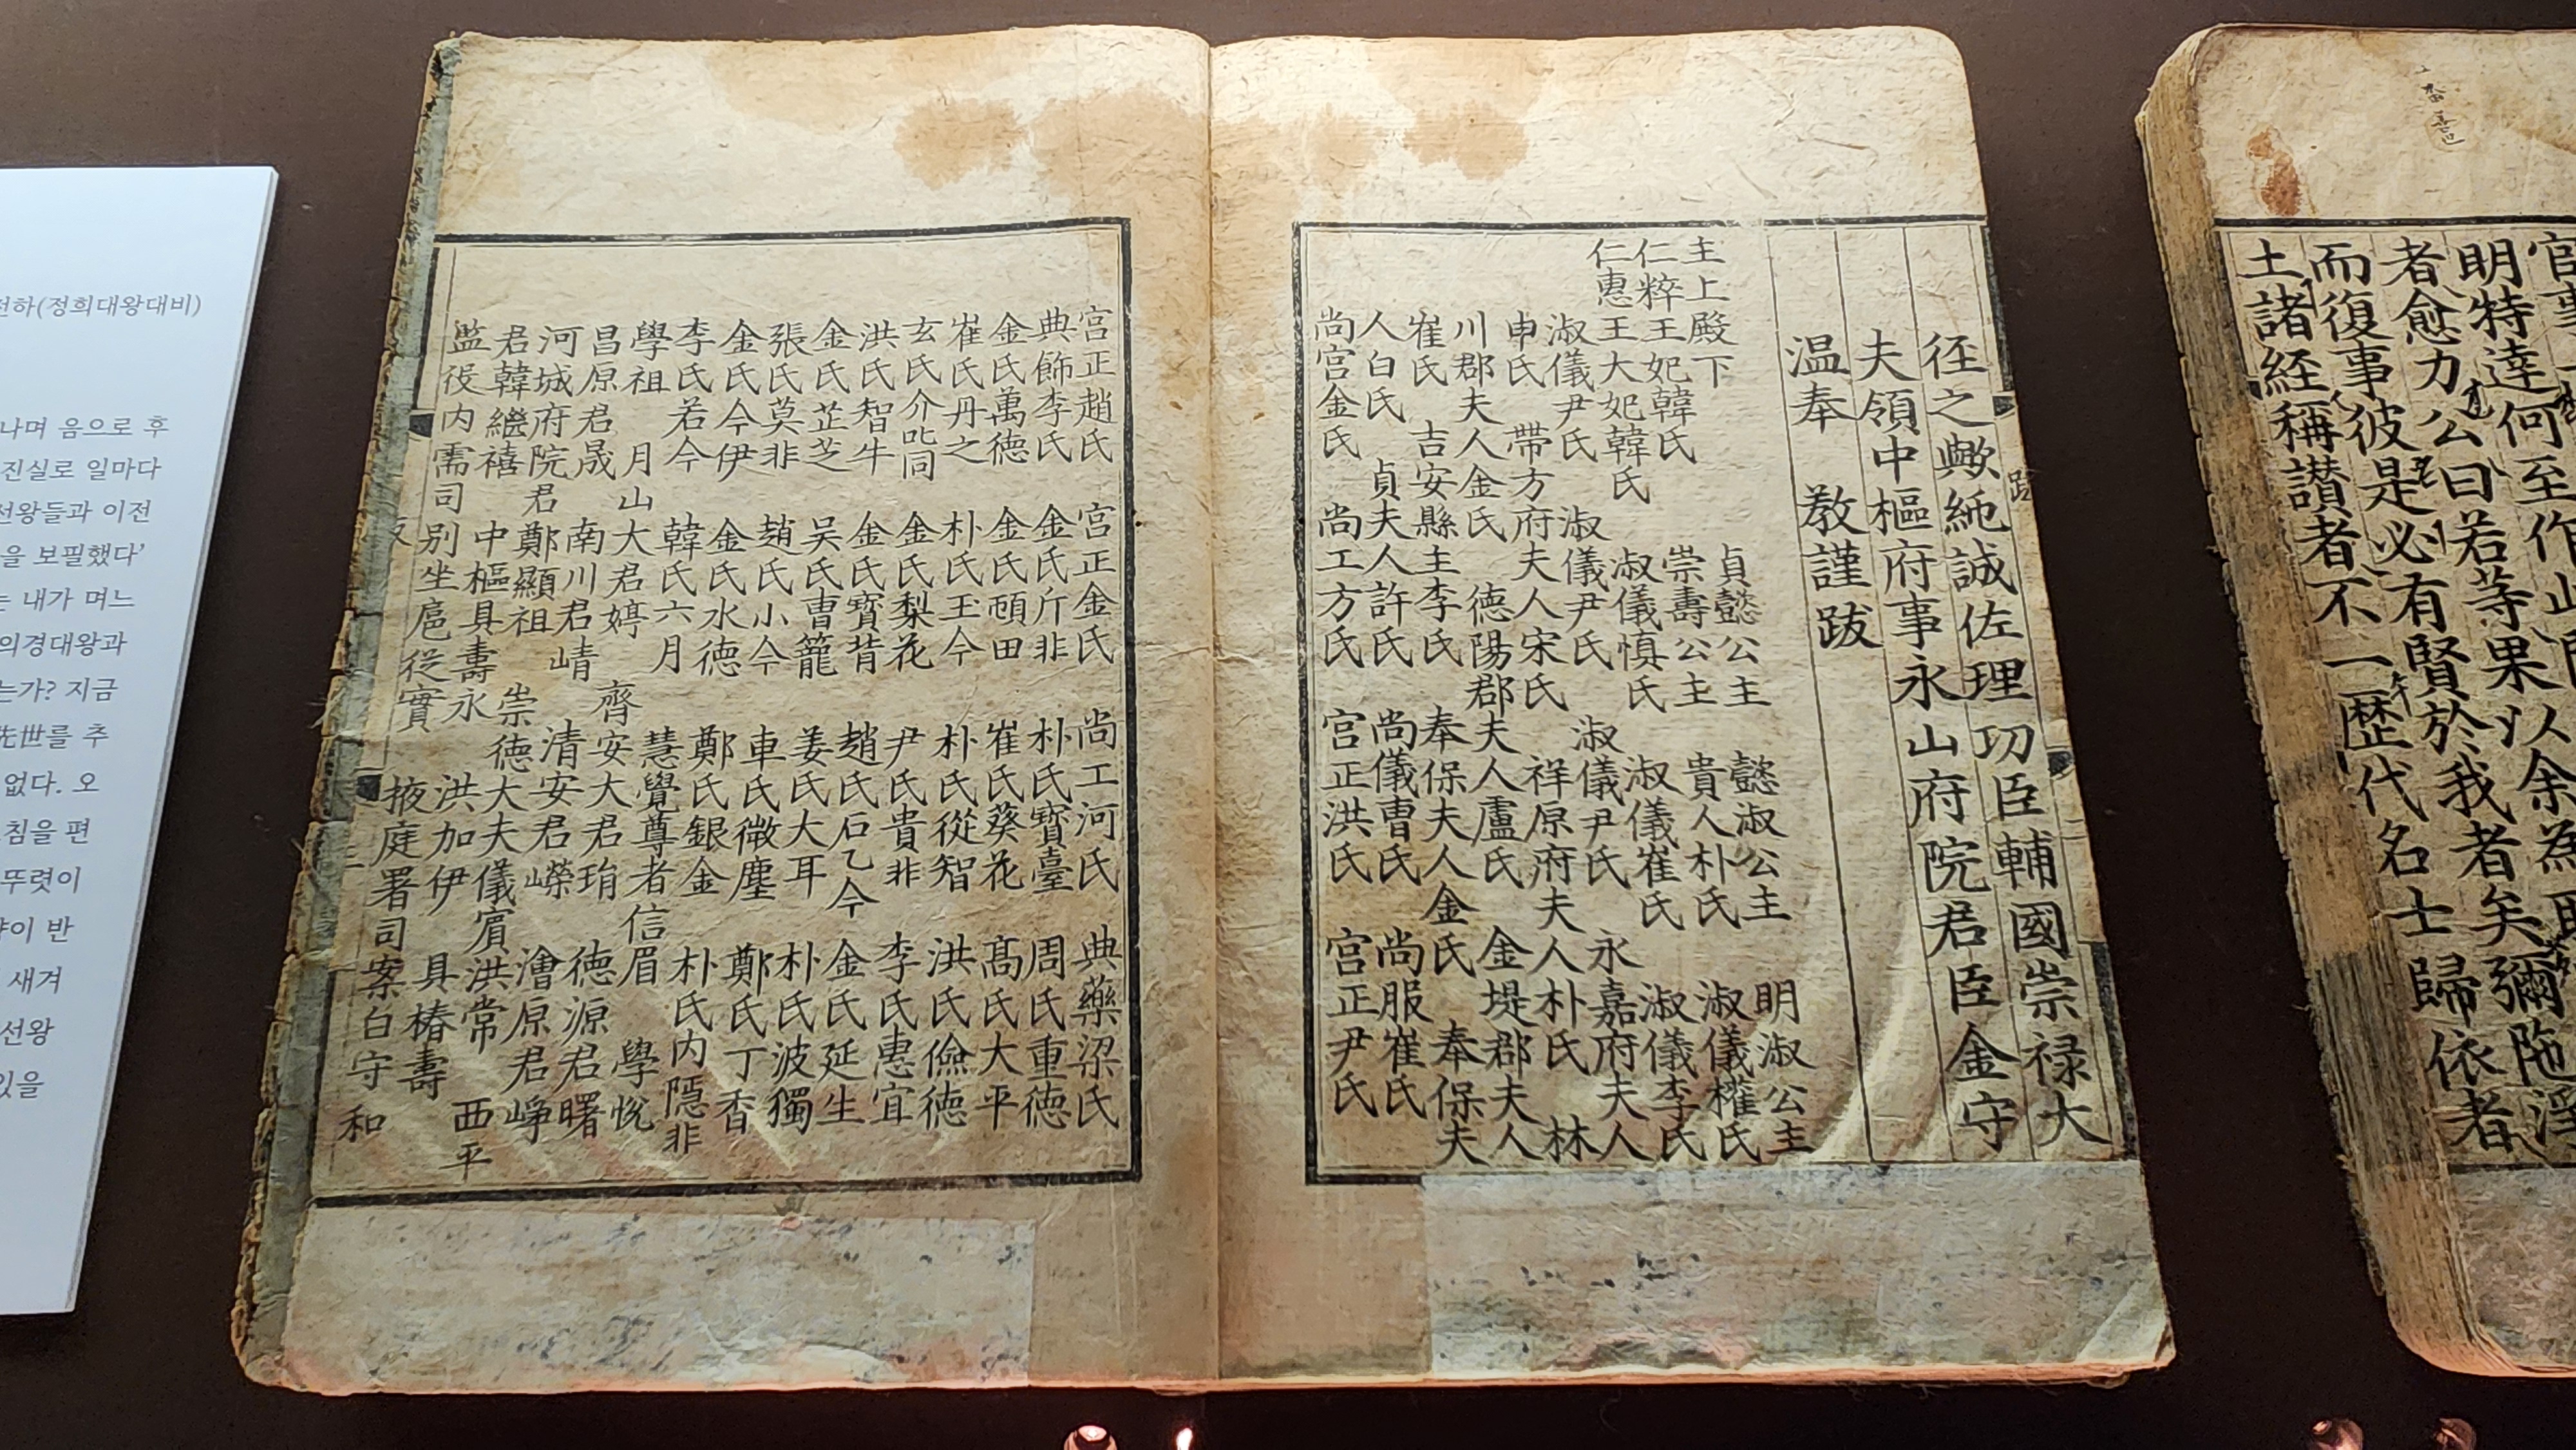 전하(정희대왕대비)
나며 음으로 후
진실로 일마다
선왕들과 이전
을 보필했다’
는 내가 며느
의경대왕과
는가? 지금
先世를 추
없다. 오
침을 편
뚜렷이
이 반
새겨
선왕
있을
之歟純誠佐理功臣輔國崇禄大
夫領中樞府事永山府院君臣金守
温奉 教謹跋
主上殿下 貞懿公主 懿淑公主 明淑公主
仁粹王妃韓氏 崇壽公主 貴人朴氏 淑儀權氏
仁惠王大妃韓氏 淑儀慎氏 淑儀崔氏 淑儀李氏
淑儀尹氏 淑儀尹氏 淑儀尹氏 永嘉府夫人
申氏 帶方府夫人宋氏 祥原府夫人朴氏 林
川郡夫人金氏 德陽郡夫人盧氏 金堤郡夫人
崔氏 吉安縣主李氏 奉保夫人金氏 奉保夫
人白氏 貞夫人許氏 尚儀曺氏 尚服崔氏
尚宫金氏 尚工方氏 宫正洪氏 宫正尹氏
宫正趙氏 宫正金氏 尚工河氏 典藥梁氏
典飾李氏 金氏斤非 朴氏寳臺 周氏重德
金氏萬德 金氏頓田 崔氏葵花 髙氏大平
崔氏丹之 朴氏玉今 朴氏從智 洪氏儉德
玄氏介叱同 金氏梨花 尹氏貴非 李氏惠宜
洪氏智牛 金氏寳背 趙氏石乙今 金氏延生
金氏芷芝 吴氏曺籠 姜氏大耳 朴氏波獨
張氏莫非 趙氏小今 車氏微塵 鄭氏丁香
金氏今伊 金氏水德 鄭氏銀金 朴氏内隱非
李氏若今 韓氏六月 慧覺尊者信眉 學悅
學祖 月山大君婷 齊安大君琄 德源君曙
昌原君晟 南川君崝 清安君嶸 澮原君崢
河城府院君鄭顯祖 崇德大夫儀賔洪常 西平
君韓繼禧 中樞具壽永 洪加伊 具椿壽
監役内需司别坐扈從實 掖庭署司案白守和
官事
明特達何至作此
者愈力公曰若等果以余為
而復事彼是必有賢於我者矣彌陁淨
土諸經稱讃者不一歴代名士歸依者